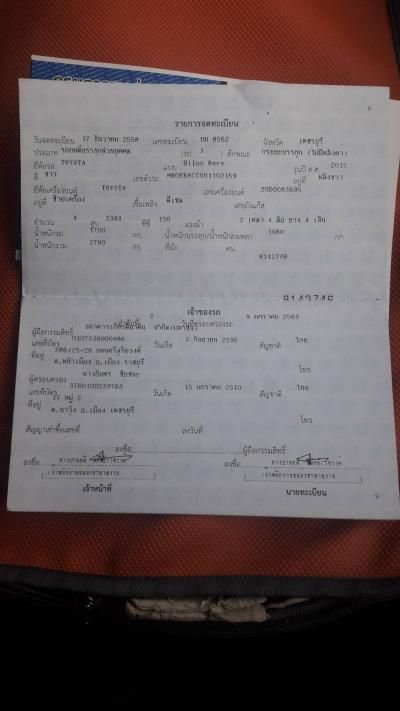 8
รายการจดทะเบียน
วันจดทะเบียน 17 ธันวาคม 2558 เลขทะเบียน 8562 จังหวัด เพชรบุรี
ประเภท รถยนต์บรรทุกส่วนบุคคล (รย 3 ) ลักษณะ กระบะบรรทุก (ไม่มีหลังคา)
ยี่ห้อรถ TOYOTA แบบ Hilux Revo รุ่นปี ค.ศ. 2015
สี ขาว เลขตัวรถ MR0EB8CC001102169 อยู่ที่ หลังขวา
ยี่ห้อเครื่องยนต์ TOYOTA เลขเครื่องยนต์ 2GD0083695
อยู่ที่ ซ้ายเครื่อง เชื้อเพลิง ดีเซล เลขถังแก๊ส
จำนวน 4 สูบ 2393 ซีซี 150 แรงม้า 2 เพลา 4 ล้อ ยาง 4 เส้น
น้ำหนักรถ 1700 กก. น้ำหนักบรรทุก/น้ำหนักลงเพลา 1080 กก.
น้ำหนักรวม 2780 กก. ที่นั่ง คน
8142746
8142746
เจ้าของรถ
ลำดับที่ 2 วันที่ครอบครองรถ 9 มกราคม 2563
ผู้ถือกรรมสิทธิ์ จำกัด(มหาชน)
เลขที่บัตร 0107536000986 วันเกิด 7 กันยายน 2536 สัญชาติ ไทย
ที่อยู่ 286/25-28 ถนนศรีสุริยวงศ์
ต.หน้าเมือง อ.เมือง ราชบุรี โทร.
ผู้ครอบครอง
เลขที่บัตร 3760100239763 วันเกิด 15 มกราคม 2510 สัญชาติ ไทย
ที่อยู่ 17 หมู่ 2
อ.เมือง เพชรบุรี โทร
สัญญาเช่าซื้อเลขที่ ลงวันที่
ลงชื่อ ผู้ถือกรรมสิทธิ์
ลงชื่อ ลงชื่อ
เจ้าหน้าที่ นายทะเบียน
9